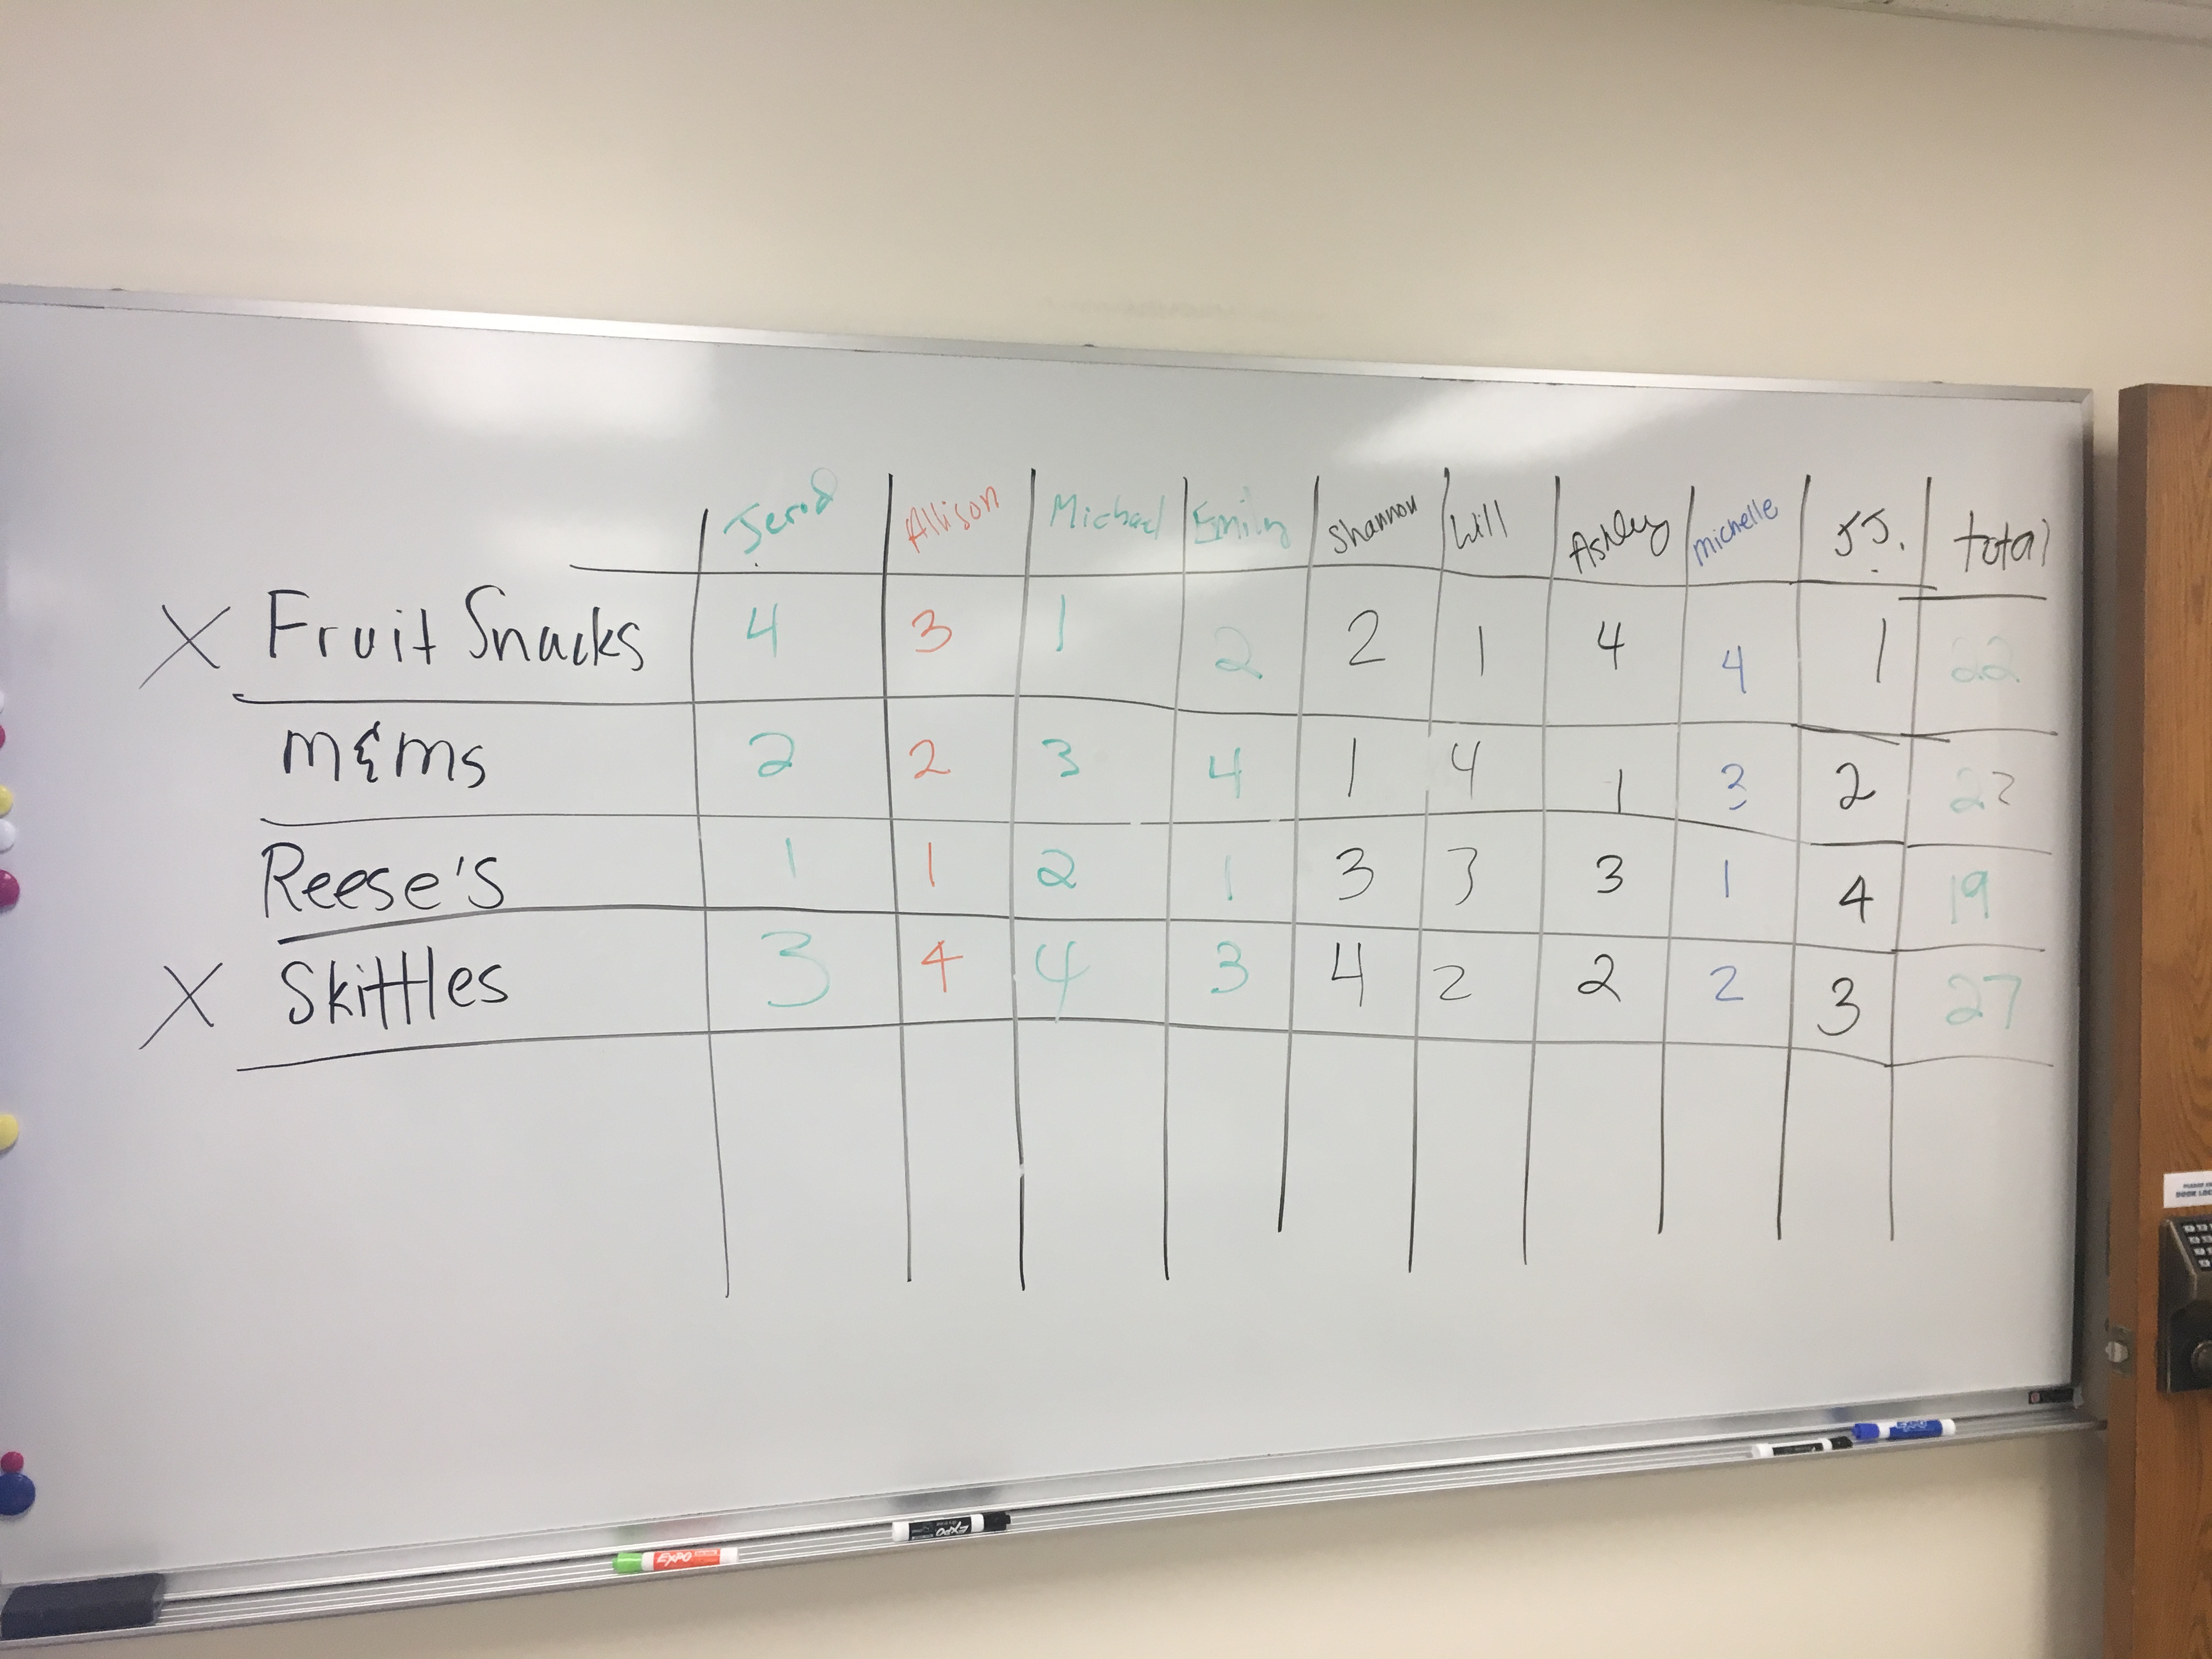 Jerod Allison Michael Emily Shannon Will Ashley michelle JJ. total
X Fruit Snacks 4 3 1 2 2 1 4 4 1 22
m&ms 2 2 3 4 1 4 1 3 2 22
Reese's 1 1 2 1 3 3 3 1 4 19
X Skittles 3 4 4 3 4 2 2 2 3 27
EXPO
EXPO